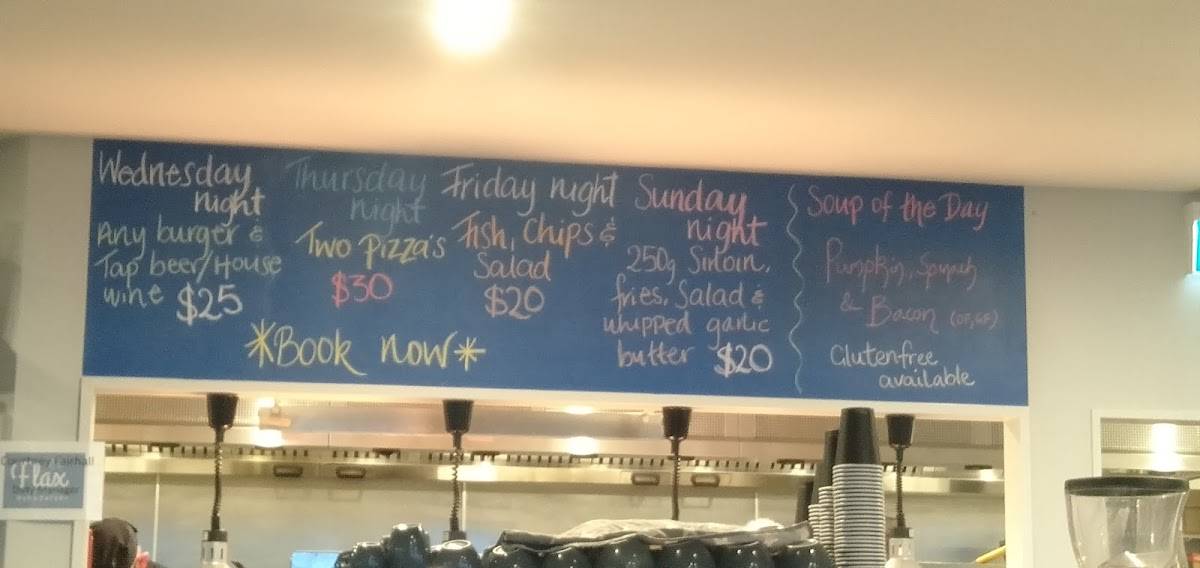 Wednesday
night
Any burger &
Tap beer/House
wine $25
Thursday
night
Two Pizza's
$30
Friday night
Fish, Chips &
Salad
$20
*Book now*
Sunday
night
250g Sirloin,
fries, Salad &
whipped garlic
butter $20
Soup of the Day
Pumpkin, Spinach
& Bacon (DF, GF)
Glutenfree
available
Flax